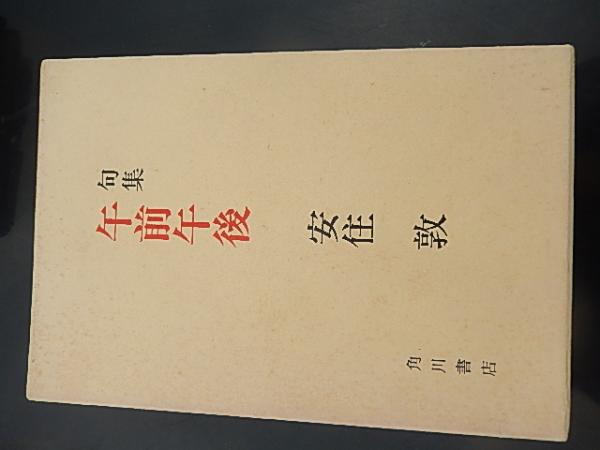 句集
午前午後
安住 敦
角川書店